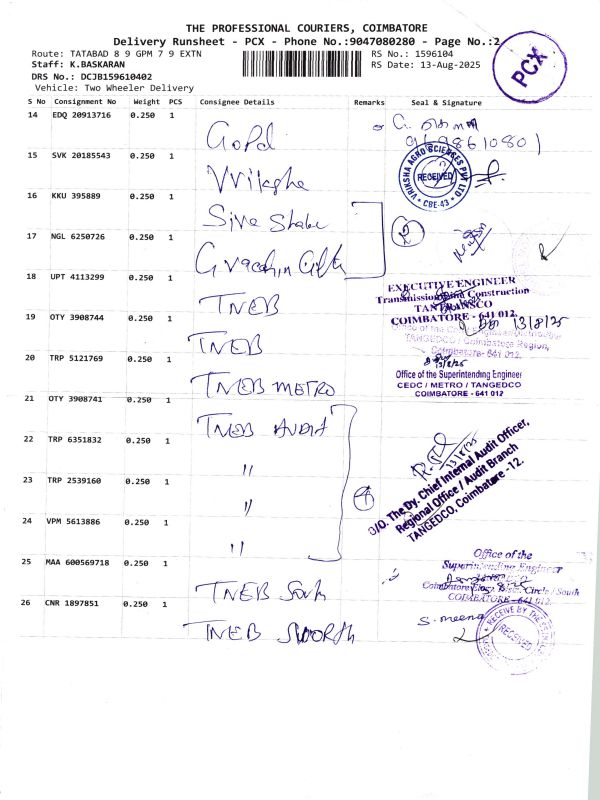 THE PROFESSIONAL COURIERS, COIMBATORE
Delivery Runsheet - PCX - Phone No.:9047080280 - Page No.:2
Route: TATABAD 8 9 GPM 7 9 EXTN
RS No.: 1596104
Staff: K.BASKARAN
RS Date: 13-Aug-2025
DRS No.: DCJB159610402
Vehicle: Two Wheeler Delivery
PCX
S No Consignment No Weight PCS Consignee Details Remarks Seal & Signature
14 EDQ 20913716 0.250 1
Gopal
15 SVK 20185543 0.250 1
VRIKSHA AGRO SCIENCES PVT LTD
RECEIVED
CBE-43
16 KKU 395889 0.250 1
Siva
2
17 NGL 6250726 0.250 1
18 UPT 4113299 0.250 1
TNEB
EXECUTIVE ENGINEER
Transmission and Construction
TANTRANSCO
COIMBATORE - 641 012.
19 OTY 3908744 0.250 1
TNEB
13/8/25
TANGEDCO / Coimbatore Region,
Coimbatore- 641 012.
20 TRP 5121769 0.250 1
TNEB METRO
13/8/25
Office of the Superintending Engineer
CEDC / METRO / TANGEDCO
COIMBATORE - 641 012
21 OTY 3908741 0.250 1
TNEB Audit
22 TRP 6351832 0.250 1
"
13/8/25
O/O. The Dy. Chief Internal Audit Officer,
Regional Office / Audit Branch
TANGEDCO, Coimbatore -12.
23 TRP 2539160 0.250 1
"
4
24 VPM 5613886 0.250 1
"
25 MAA 600569718 0.250 1
TNEB South
Office of the
Superintending Engineer
Coimbatore Elecy. Distn. Circle / South
COIMBATORE - 641 012.
26 CNR 1897851 0.250 1
TNEB NORTH
S. meena
RECEIVED